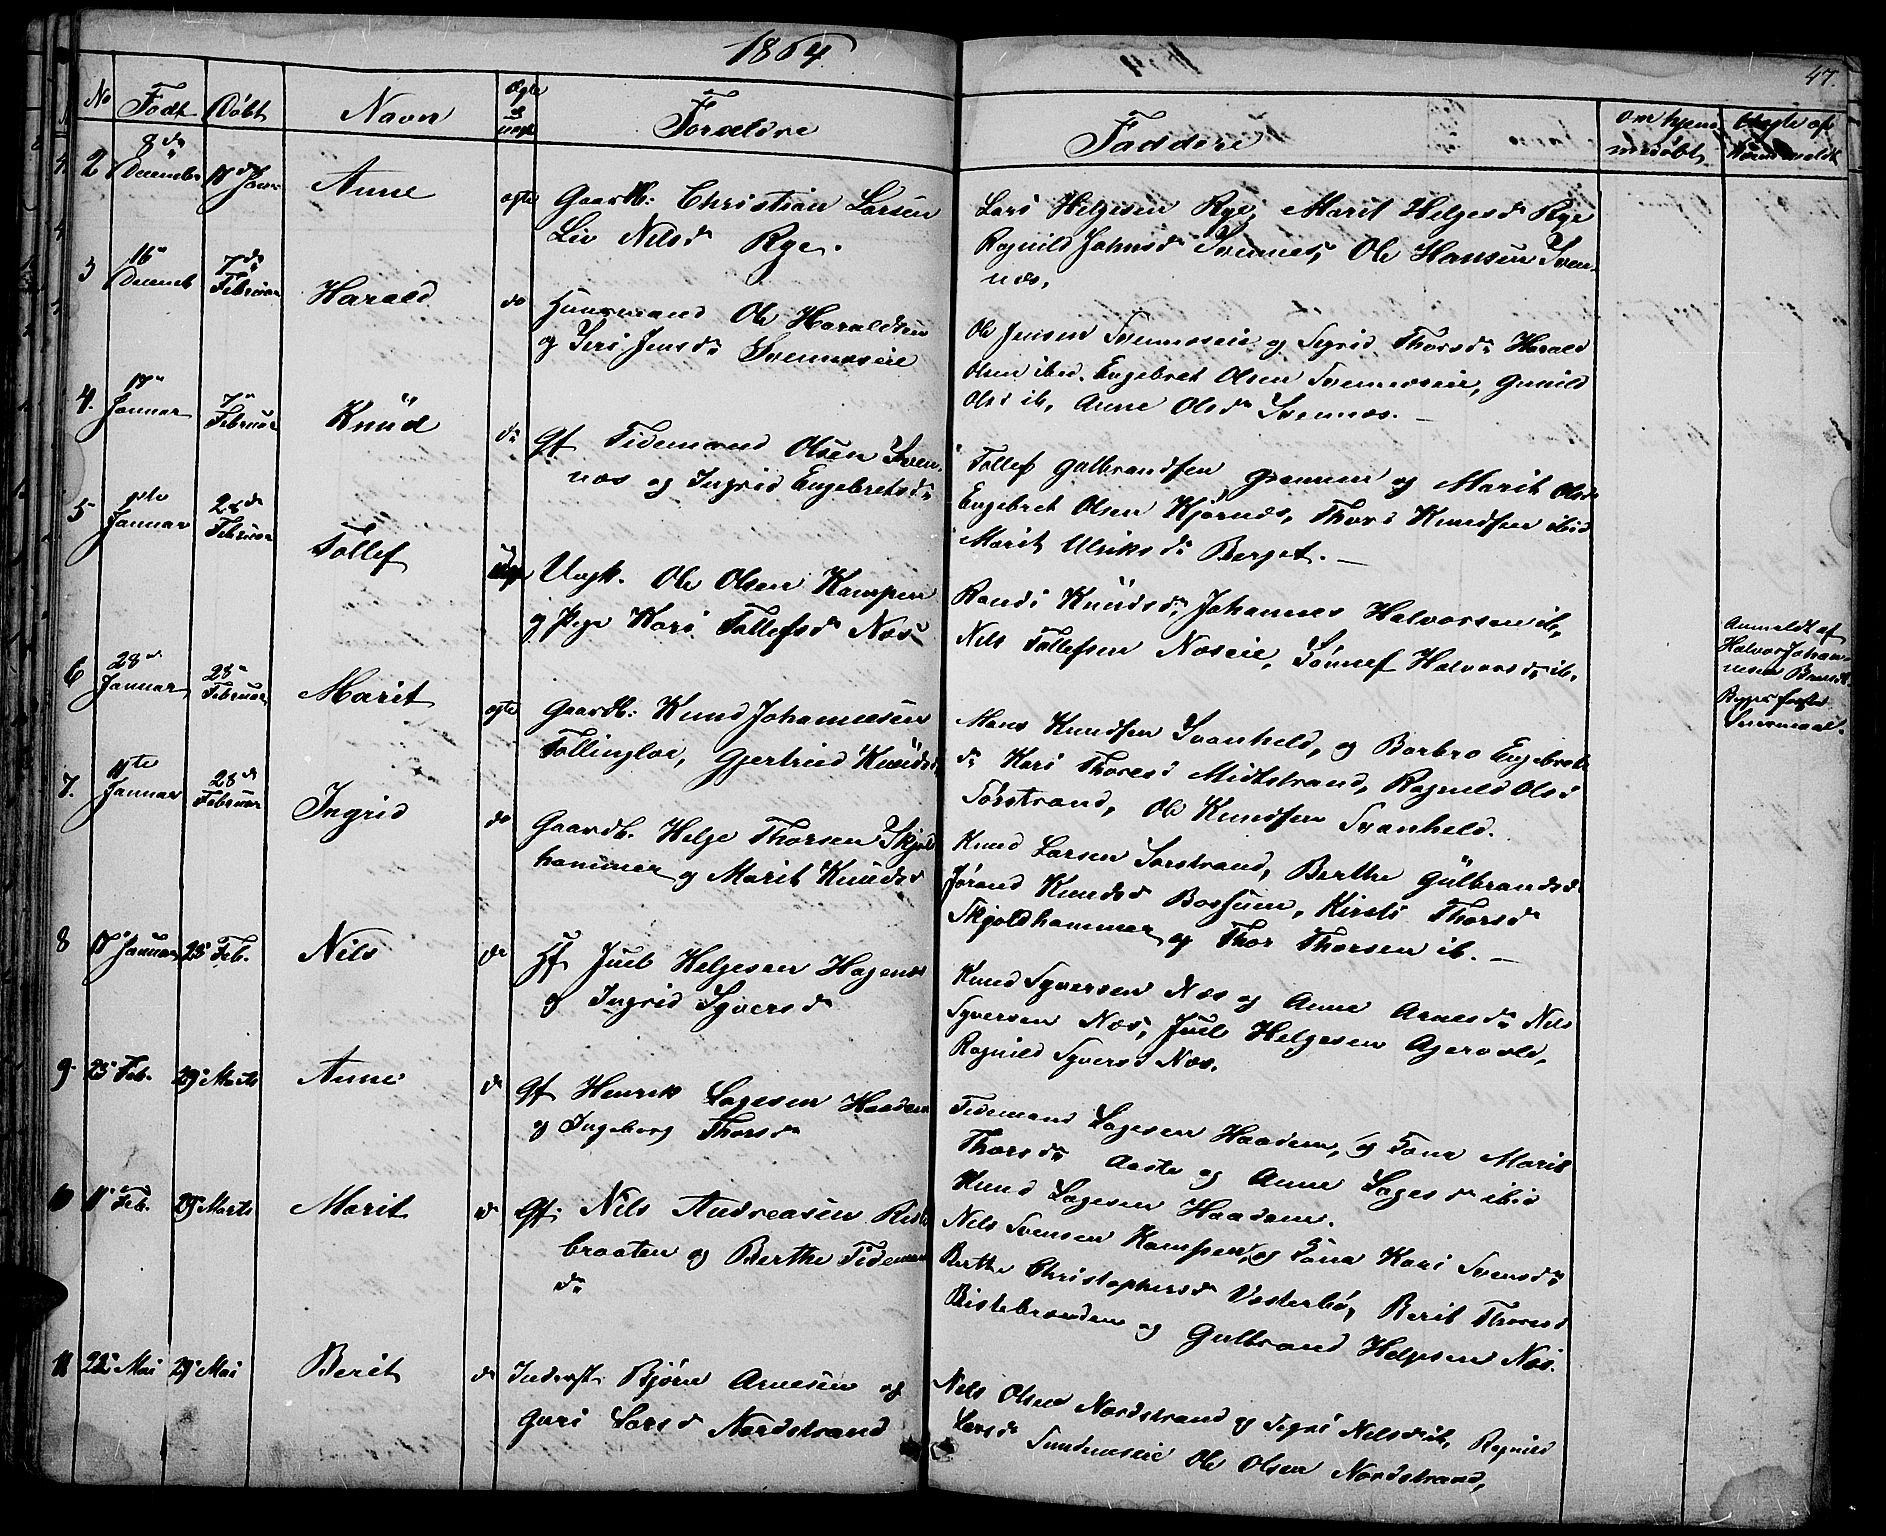 1864
47.
No Født Døbt Navn Ægte og uægte Forældre Faddere om hjemmedøbt
2 8de December 17de Janr Anne ægte Gaardb: Christian Larsen
Liv Nilsdr Rye.
Lars Helgesen Rye, Marit Helgesdr Rye
Ragnild Johnsdr Svennes, Ole Hansen Sven-
næs,
3 16de Decemb 7de Februar Harald do Huusmand Ole Haraldsen
og Siri Jensdr Svennæseie
Ole Jensen Svennæseie og Sigrid Thorsdr Harald
Olsen ibid. Engebret Olsen Svennæseie, Gunild
Olsd ib, Anne Olsdr Svennæs. —
4. Januar 7de Februar Knud do Gf Tidemand Olsen Sven-
næs og Ingrid Engebretsdr
Tollef Gulbrandsen og Marit Olsdr
Engebret Olsen Kjørnæs, Thore Knudsen ibid
Marit Ulriksdr Berget. —
5 Januar 28de Februar Tollef Uægte Ungk. Ole Olsen Kampen
og Pige Kari Tollefsdr Næs
Randi Knudsdr, Johannes Halvorsen ib,
Nils Tollefsen Næseie, Sønnef Halvorsdr ib.
Anmeldt af
Halvor Johan-
nesen
6 28de Januar 28de Februar Marit ægte Gaardb: Knud Johannesen
Tollingloe, Gjertrud Knudsd
Hans Knudsen Svanheld, og Barbro Engebrets
dr Kari Thoresd Midtstrand, Ragnild Olsd
Sørstrand, Ole Knudsen Svanheld.
7. 11te Januar 28de Februar Ingrid do Gaardb. Helge Thorsen Skjold
hammer og Marit Knudsd
Knud Larsen Sørstrand, Berthe Gulbrandsd
Jørand Knudsd Bossum, Kirsti Thorsdr
Skjoldhammer og Thor Thorsen ib. —
8 17de Januar 28de Feb. Nils do Hf Juel Helgesen Hagenæs
og Ingrid Syversdr
Knud Syversen Næs og Anne Arnesdr Nils
Syversen Næs, Juel Helgesen Agervold,
Ragnild Syversd Næs.
9. 23de Feb. 29de Marts Anne do Gf Henrik Lagesen Haadem
og Ingeborg Thorsdr
Tidemand Lagesen Haadem, og Kone Marit
Thorsdr Aaste og Anne Lagesdr ibid
Knud Lagesen Haadem.
10 11te Feb. 29de Marts Marit do Gf. Nils Andreasen Riste
braaten og Berthe Tidemands
dr
Nils Svensen Kampen, og Kone Kari Svensdr
Berthe Christophersdr Vesterbø, Berit Thoresd
Ristebraaden og Gulbrand Helgesen Næs.
11 22de Mai 29de Mai Berit do Inderst. Bjørn Arnesen og
Guri Larsd Nordstrand
Nils Olsen Nordstrand og Sigri Nilsdr ib, Ragnild
Larsdr Sundemseie Ole Olsen Nordstrand,